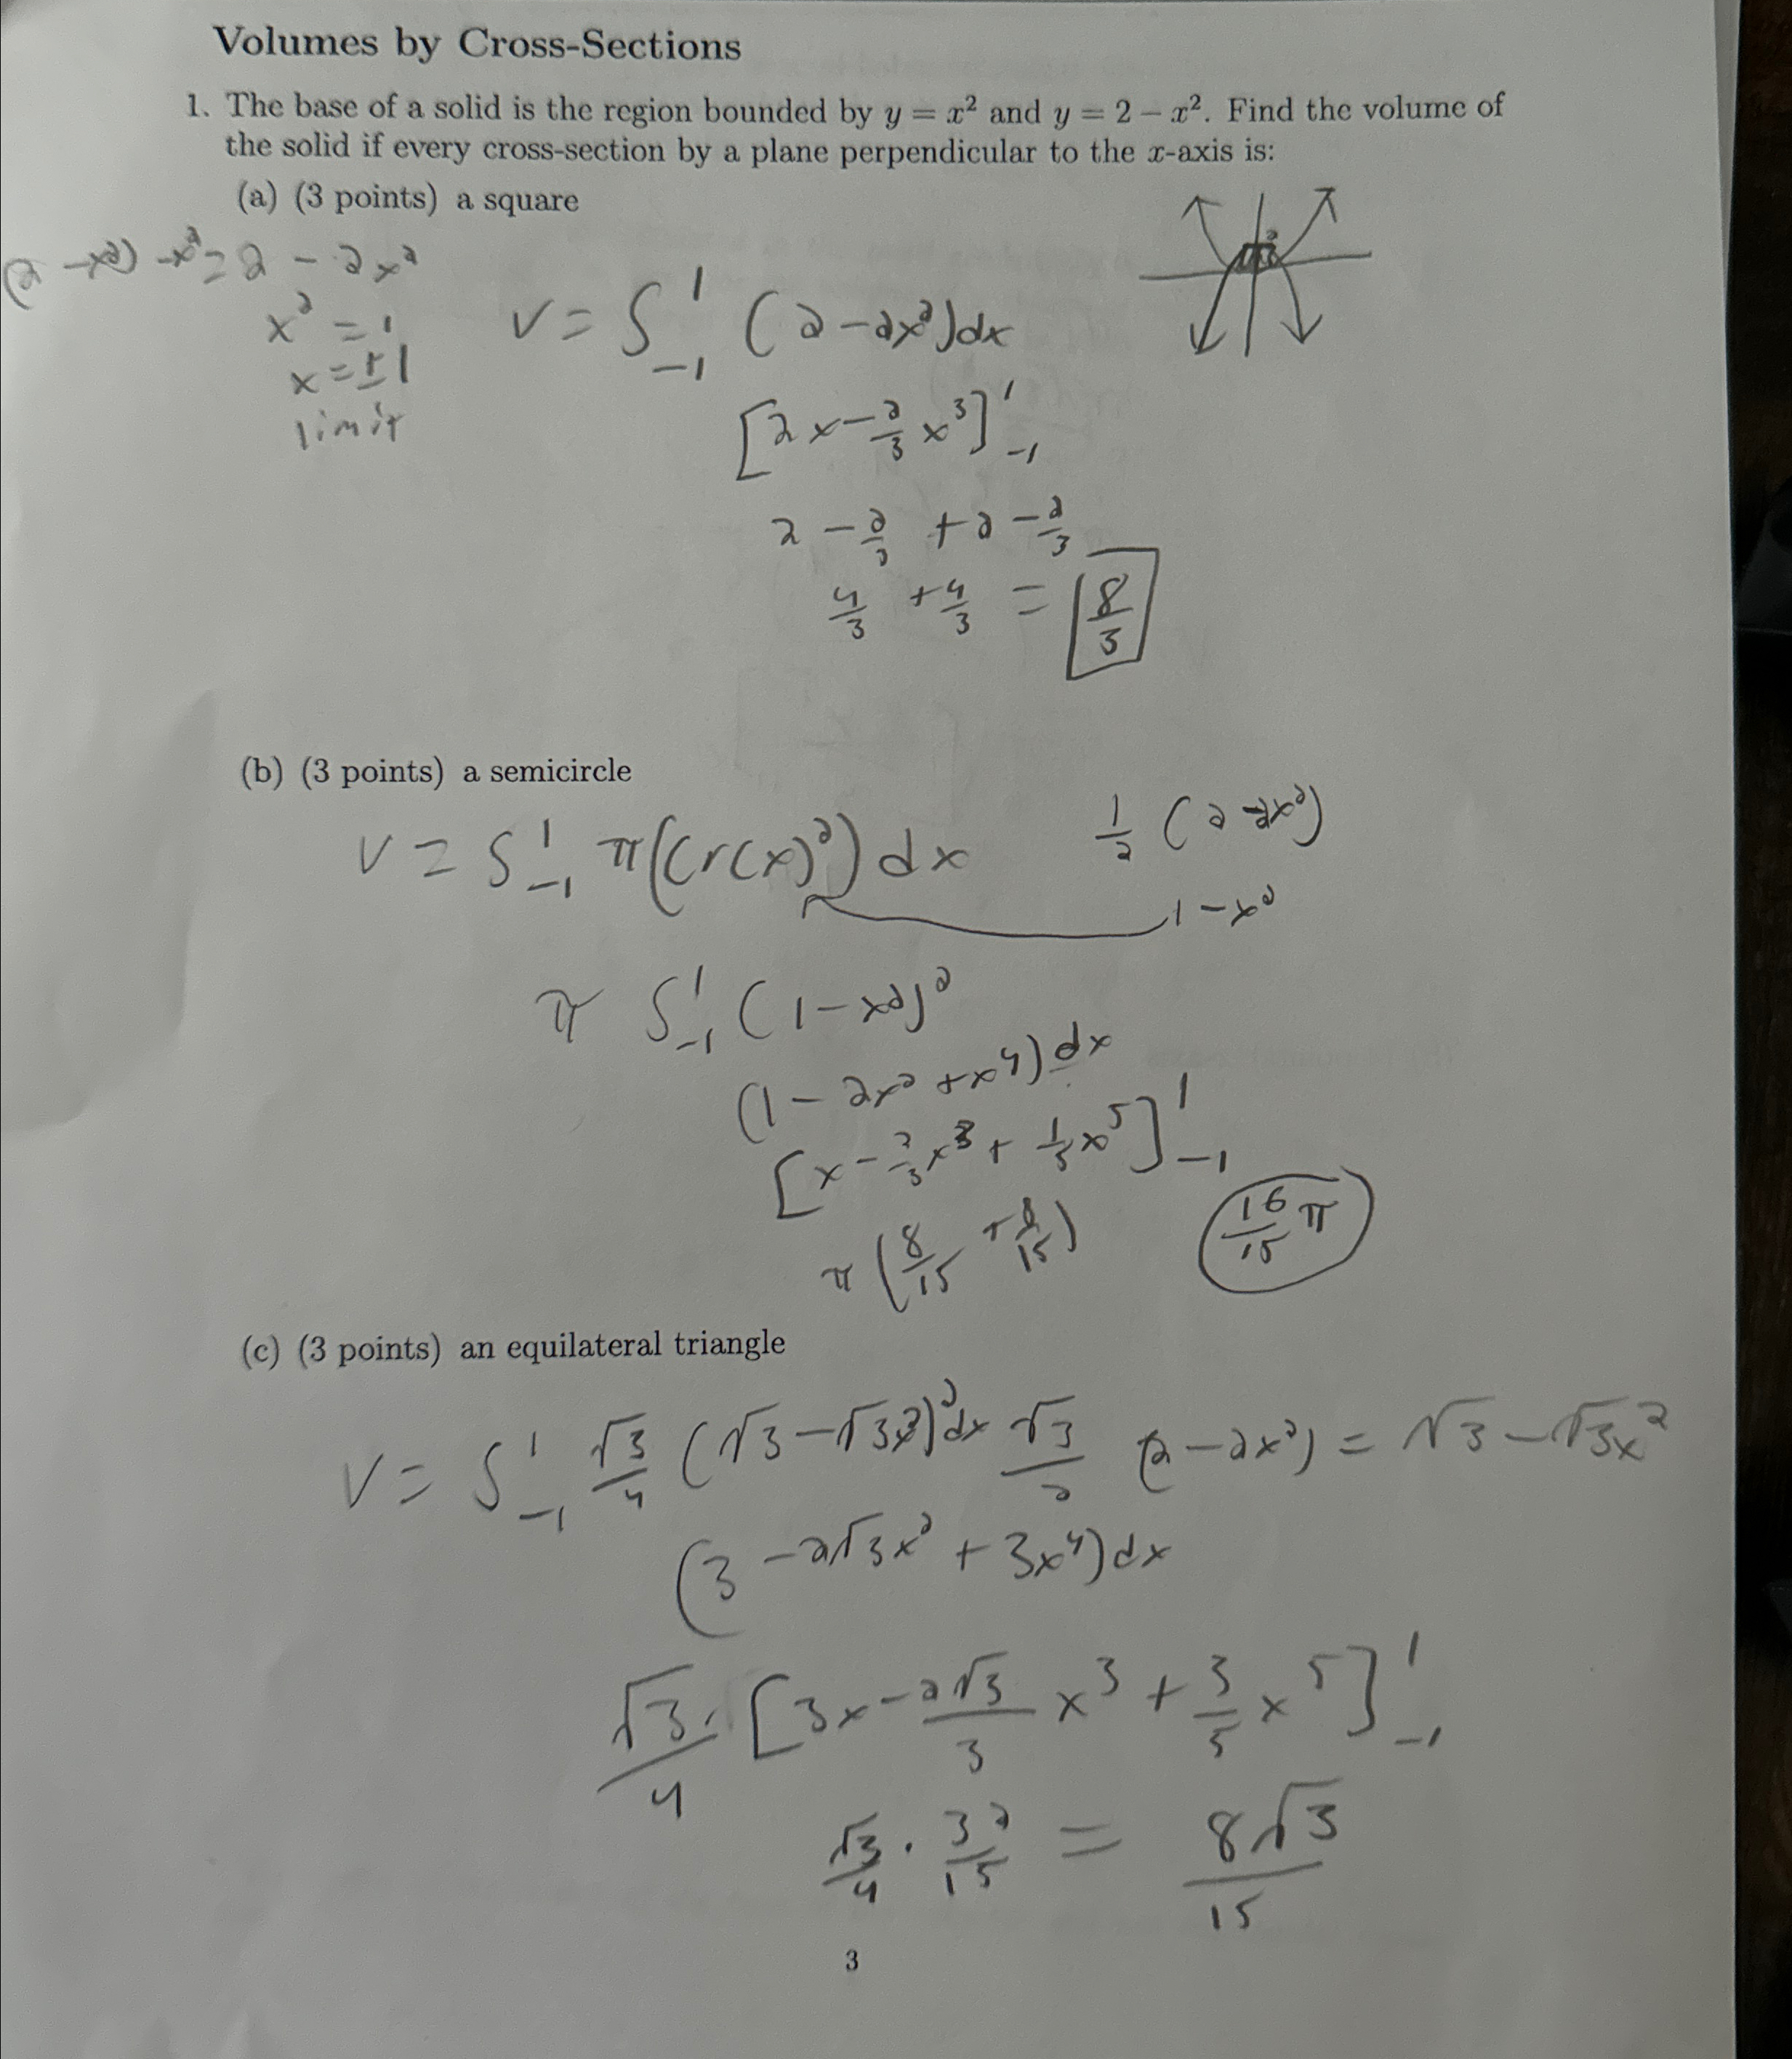 Volumes by Cross-Sections
1. The base of a solid is the region bounded by y = x² and y = 2 − x². Find the volume of
the solid if every cross-section by a plane perpendicular to the x-axis is:
(a) (3 points) a square
(2 − x²) − x² = 2 − 2x²
x² = 1
x = ±1
limit
V = ∫₋₁¹ (2 − 2x²)dx
[2x − 2/3 x³]₋₁¹
2 − 2/3 + 2 − 2/3
4/3 + 4/3 = 8/3
(b) (3 points) a semicircle
V = ∫₋₁¹ π((r(x)²) dx
1/2 (2 − 2x²)
1 − x²
π ∫₋₁¹ (1 − x²)²
(1 − 2x² + x⁴) dx
[x − 2/3 x³ + 1/5 x⁵]₋₁¹
π (8/15 + 8/15)
16/15 π
(c) (3 points) an equilateral triangle
V = ∫₋₁¹ √3/4 (√3 − √3x²)² dx
√3/2 (2 − 2x²) = √3 − √3x²
(3 − 2√3x² + 3x⁴)dx
√3/4 · [3x − 2√3/3 x³ + 3/5 x⁵]₋₁¹
√3/4 · 32/15 = 8√3/15
3